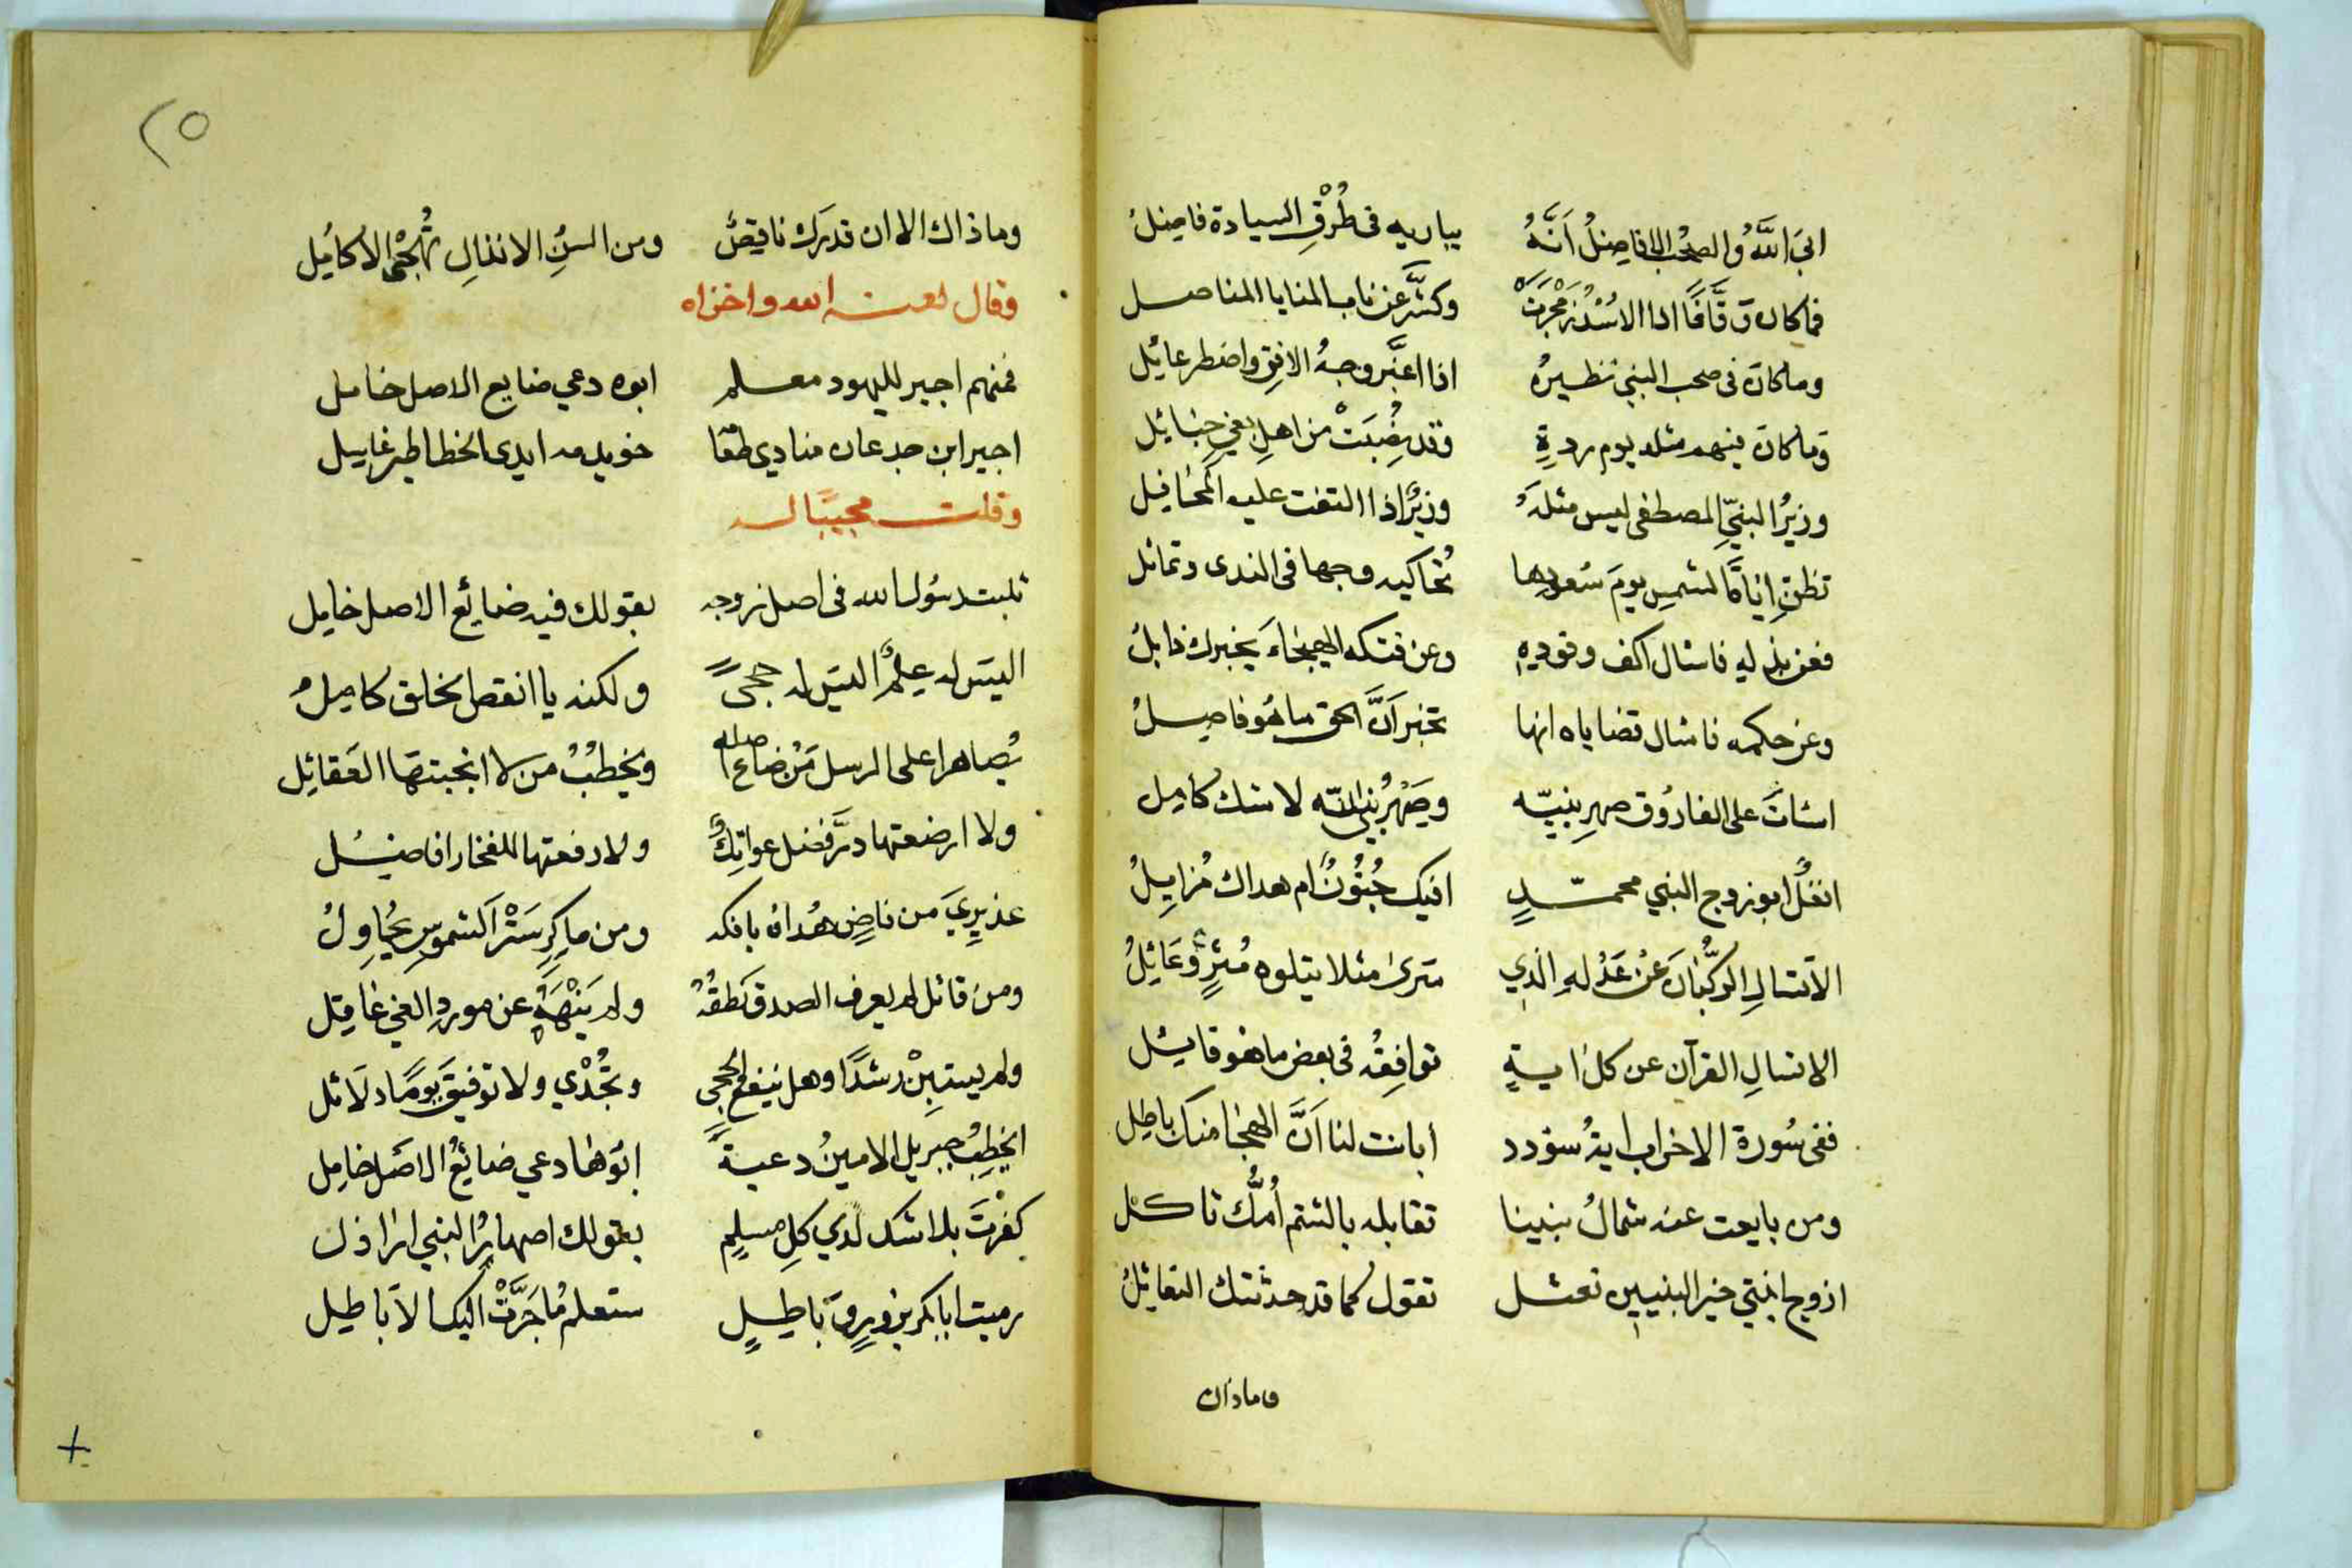 ابى اللَّهُ والصحب الافاضلُ اَنَّهُ يباريه فى طُرْقِ السيادة فاضلُ
فما كان وَقَّافًا اذا الاسْدُ زَمْجَرَتْ وكشَّر عن ناب المنايا المناصل
وما كان فى صحب النبي نظيرهُ اذا اغبَّر وجهُ الافق واضطر عائل
وما كان فيهم مثله يوم ردةٍ وقد نصُبَتْ من اهل بغي حبائل
وزيرُ النبيّ المصطفى ليس مثلهُ وزيرٌ اذا التفت عليه المحافل
تظن اياة الشمس يومَ سُعودها تحاكيه وجها فى الندى وتماثل
فعن بذلهِ فاسئال اكف وفودهِ وعن فتكه الهيجاءَ يخبرك ذابلُ
وعن حكمه فاسئال قضاياه انها تخبر اَنَّ الحق ما هُو فاصلُ
اسئاتَ على الفارُوق صهرِ نبيّه وصَهْرُ نبى اللّه لا شك كامل
انغلٌ ابو زوج النبي محمّدٍ افيك جُنُونٌ ام هداك مُزايلُ
الا تسالِ الركُّبَانَ عنْ عَدْلهِ الّذي سَرى مثلا يتلوه مُثرٍ وَعَائِلُ
الا تسالِ القرآن عن كل ايةٍ توافِقُه فى بعض ما هو قائل
ففى سُورة الاحزاب ايةُ سؤدد أبانت لنا اَنَّ الهجا منك باطل
ومن بايعت عنه شمالُ نبينا تقابله بالشتم أُمُّك ثاكل
ازوج ابنتي خير النبيين نعثل تقول كما قد حدثتك النعاثلُ
وماذاك
٢٥
وما ذاك الا ان قدرَك ناقصٌ ومن السُنِ الانذالِ تُهْجى الاكامل
وقال لعنه الله واخزاه
فمنهم اجير لليهود معلم ابوه دعي ضايع الاصل خامل
اجير ابن جدعان منادي طعا خويدم ايدى الخطا طير غابيل
وقلت مجيبًا له
ثلبت رسُول الله فى اصل زوجه بقولك فيه ضائع الاصل خامل
اليسَ له علمٌ اليسَ له حجىً ولكنه يا انقص الخلق كاملُ
يُصاهر اعلى الرسل مَنْ ضاع اصله ويخطبُ من لا انجبتها العَقائل
ولا ارضعتها درَّ فضل عواتِكٌ ولا رفعتها للفخار افاضلُ
عذيرِيَ من ناضٍ هُداهُ بافكه ومن ماكرٍ سَتْرَ الشموسِ يُحاوِلُ
ومن قائل لم يعرف الصدق نَطقُهُ ولم يَنْهَهُ عن موردِ الغي عاقل
ولم يستبِنْ رشدًا وهل ينفع الحجى وتُجْدي ولا توفيقَ يومًا دلَائل
ايخطِبُ جبريل الامينُ دعيةً ابُوها دعي ضائعُ الاصَل خامل
كفرْتَ بلا شك لدي كلِ مسلمٍ بقولك اصهارُ النبي اراذل
رميت ابا بكر بزورٍ وباطِلٍ ستعلم مُا جَرَّتْ اليك الاَباطيل